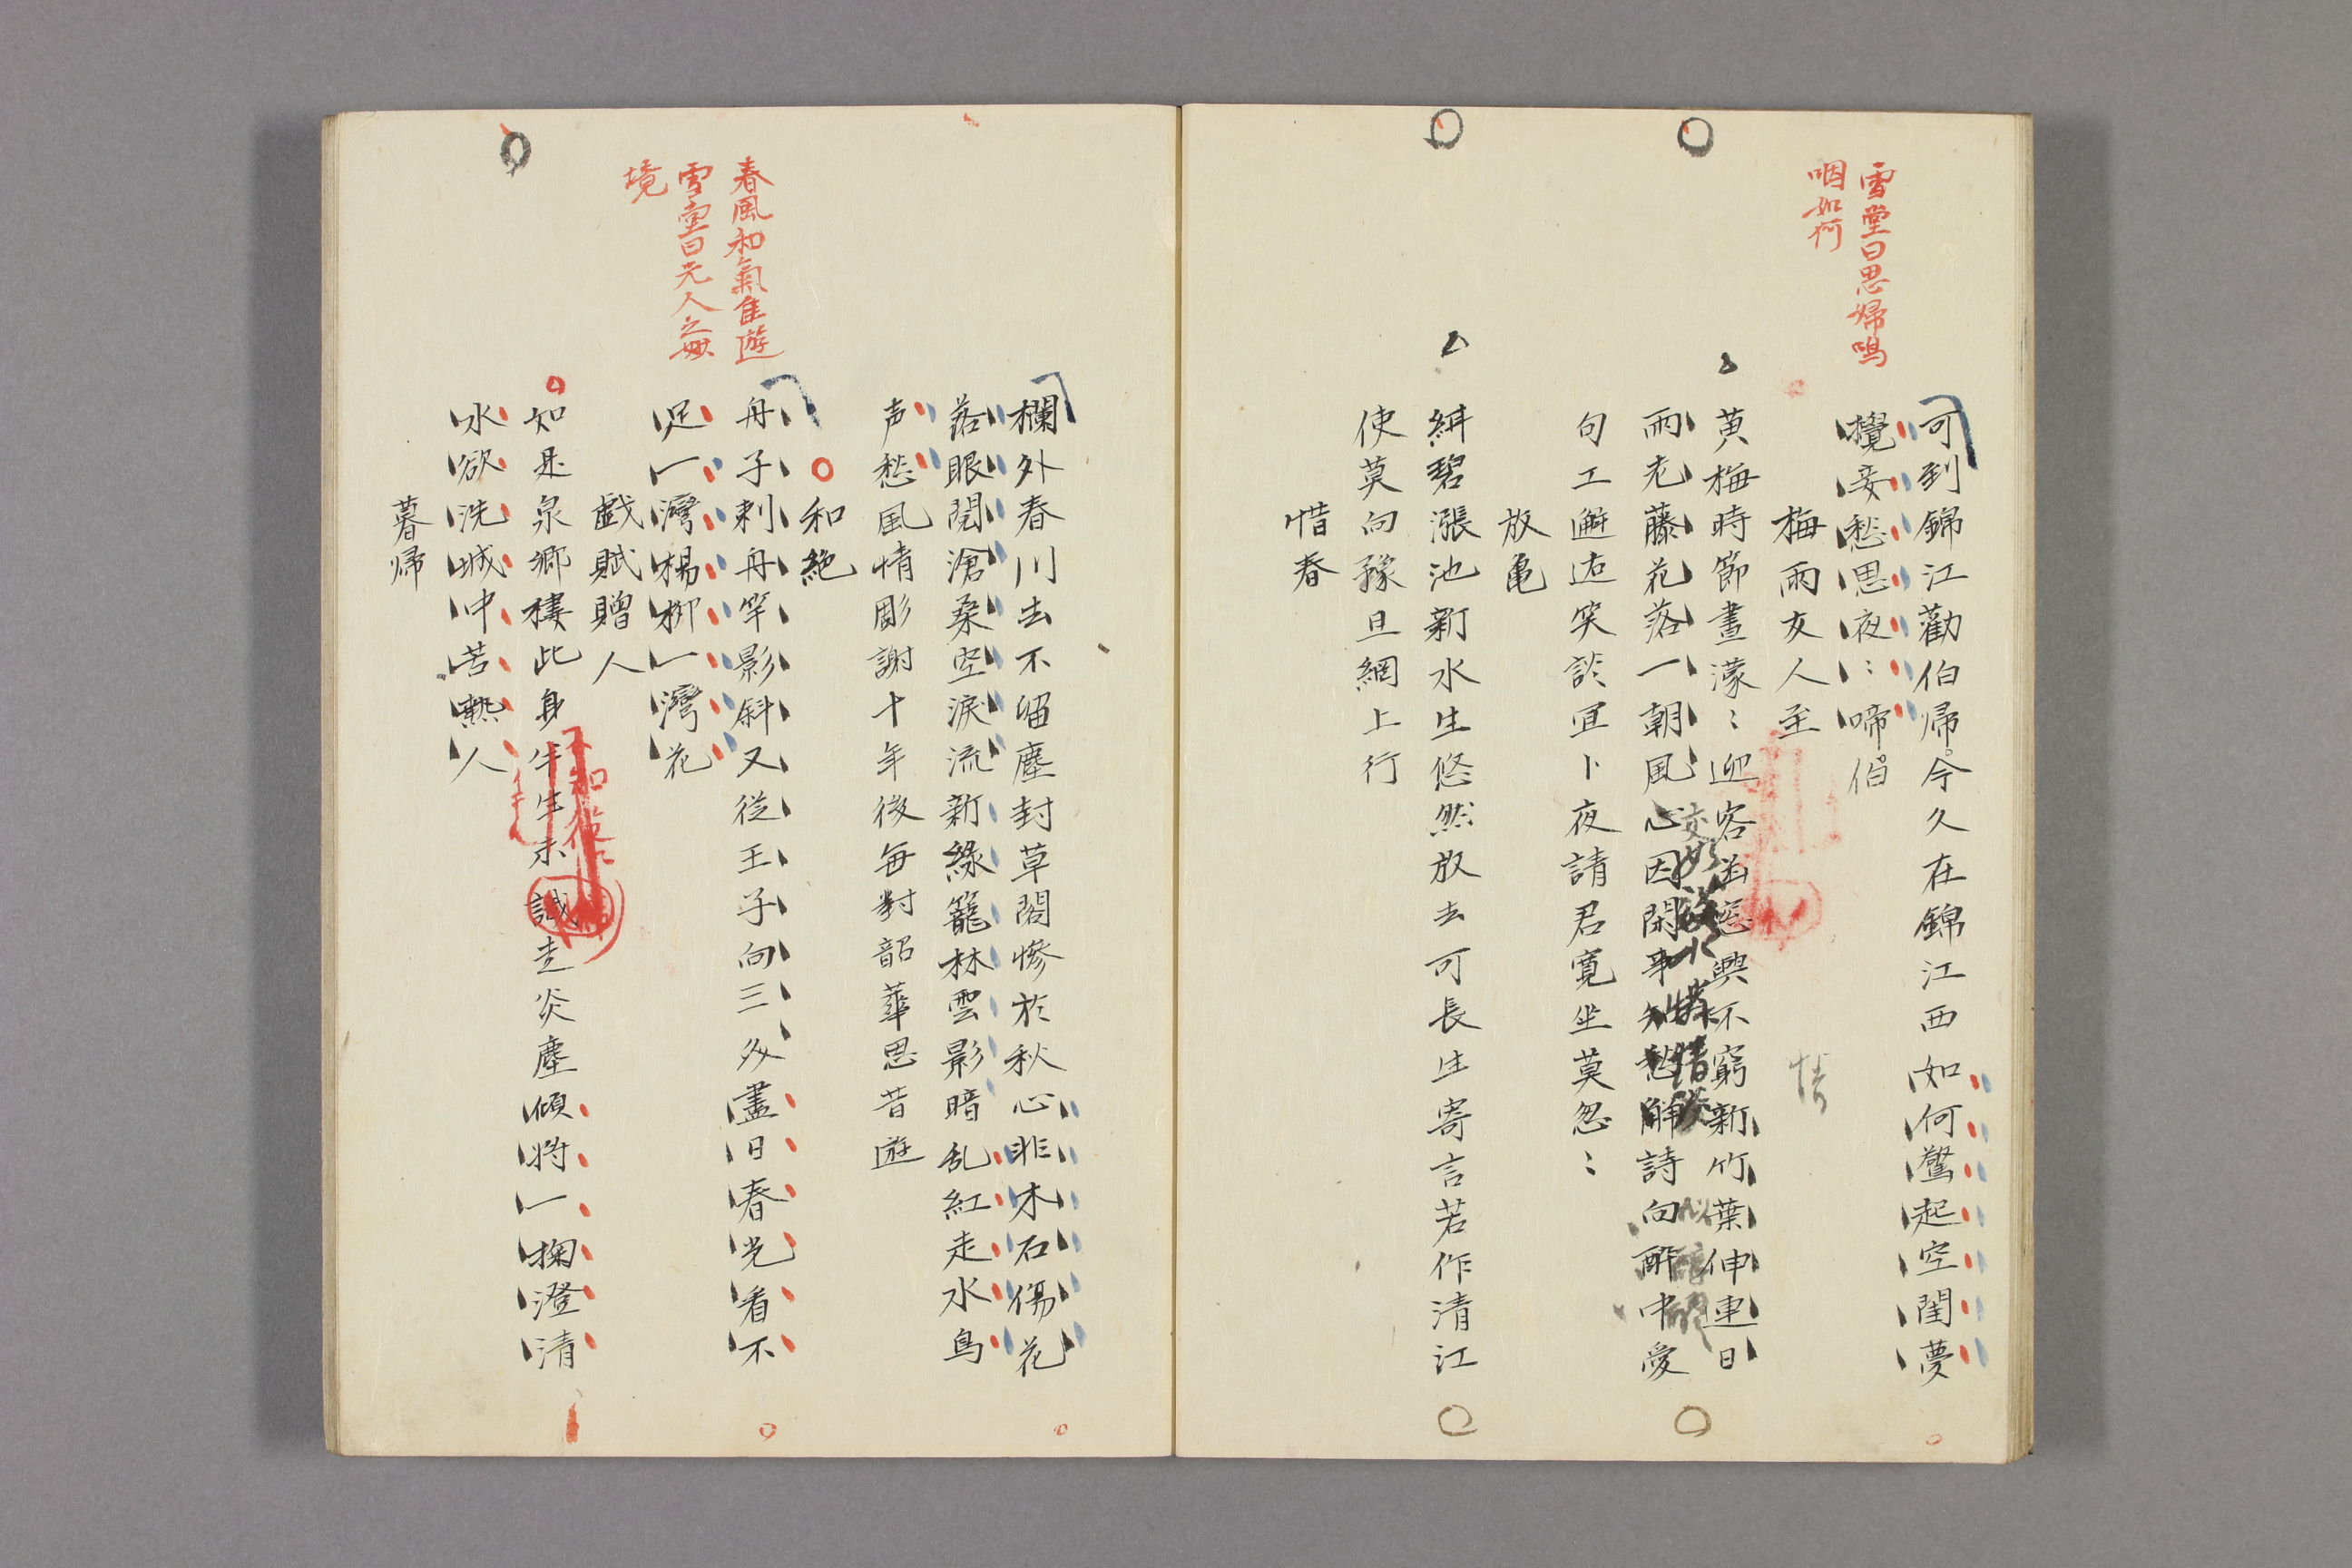 雪堂曰思婦鳴
咽如何
可到錦江勸伯帰今久在錦江西如何驚起空閨夢
攪妾愁思夜〻啼伯
梅雨友人至
黄梅時節晝濛〻迎客幽窓興不窮新竹葉伸連日
雨老藤花落一朝風心因閑事知愁解詩向酔中愛
句工邂逅笑談宜卜夜請君寛坐莫怱〻
惜
放亀
緑碧漲池新水生悠然放去可長生寄言若作清江
使莫向豫且網上行
惜春
欄外春川去不留塵封草閣惨於秋心非木石傷花
落眼閲滄桑空涙流新緑籠林雲影暗乱紅走水鳥
声愁風情彫謝十年後毎對韶華思昔遊
春風和氣隹遊
雪堂曰元人之妙
境
和絶
舟子刺舟竿影斜又従王子向三多盡日春光看不
足一灣楊柳一灣花
戯賦贈人
如是泉郷棲此身半生未識走炎塵傾将一掬澄清
水欲洗城中苦熱人
暮帰